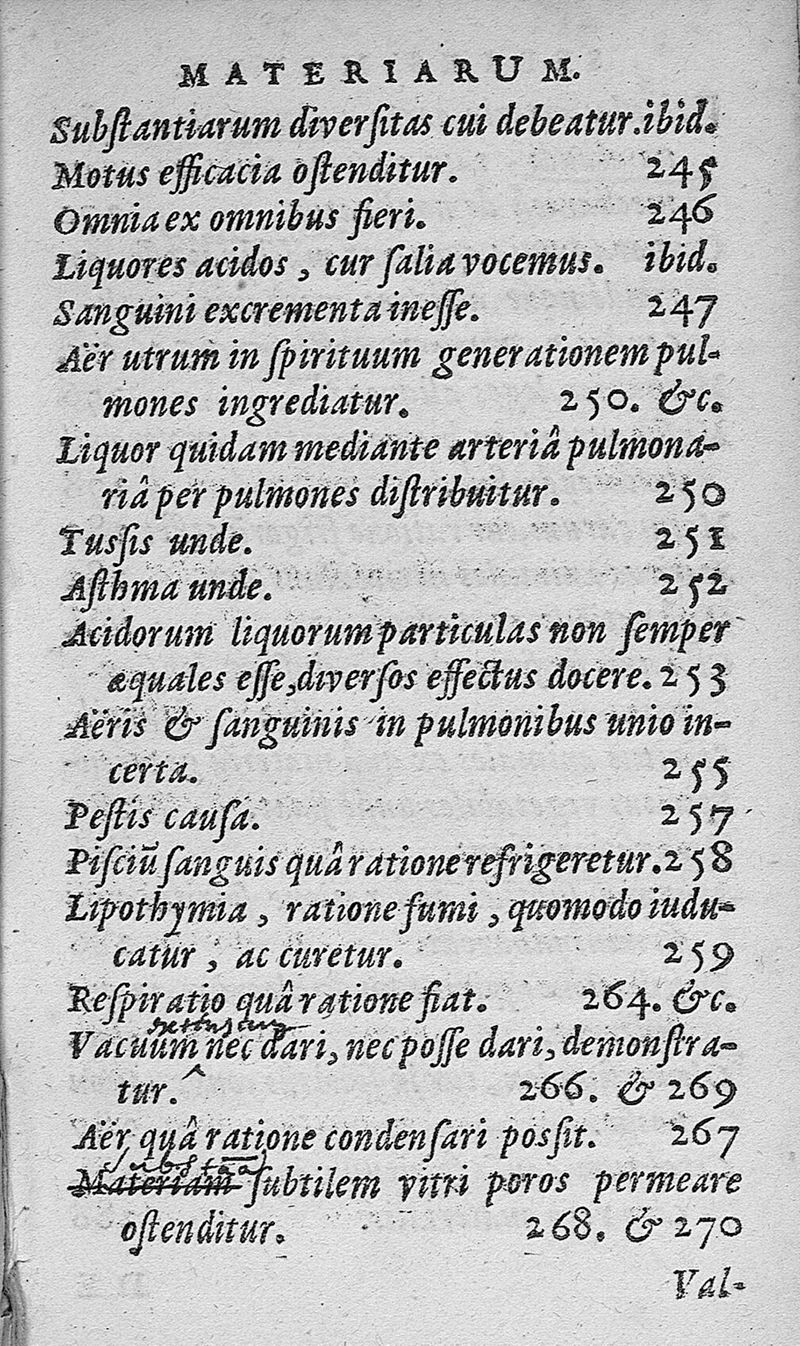 MATERIARUM.
Substantiarum diversitas cui debeatur. ibid.
Motus efficacia ostenditur. 245
Omnia ex omnibus fieri. 246
Liquores acidos, cur salia vocemus. ibid.
Sanguini excrementa inesse. 247
Aër utrum in spirituum generationem pul-
mones ingrediatur. 250. &c.
Liquor quidam mediante arteriâ pulmona-
riâ per pulmones distribuitur. 250
Tussis unde. 251
Asthma unde. 252
Acidorum liquorum particulas non semper
æquales esse, diversos effectus docere. 253
Aëris & sanguinis in pulmonibus unio in-
certa. 255
Pestis causa. 257
Pisciū sanguis quâ ratione refrigeretur. 258
Lipothymia, ratione fumi, quomodo iudu-
catur, ac curetur. 259
Respiratio quâ ratione fiat. 264. &c.
Vacuum nec dari, nec posse dari, demonstra-
tur. 266. & 269
Aër quâ ratione condensari possit. 267
substāā
Materiam subtilem vitri poros permeare
ostenditur. 268. & 270
Val-